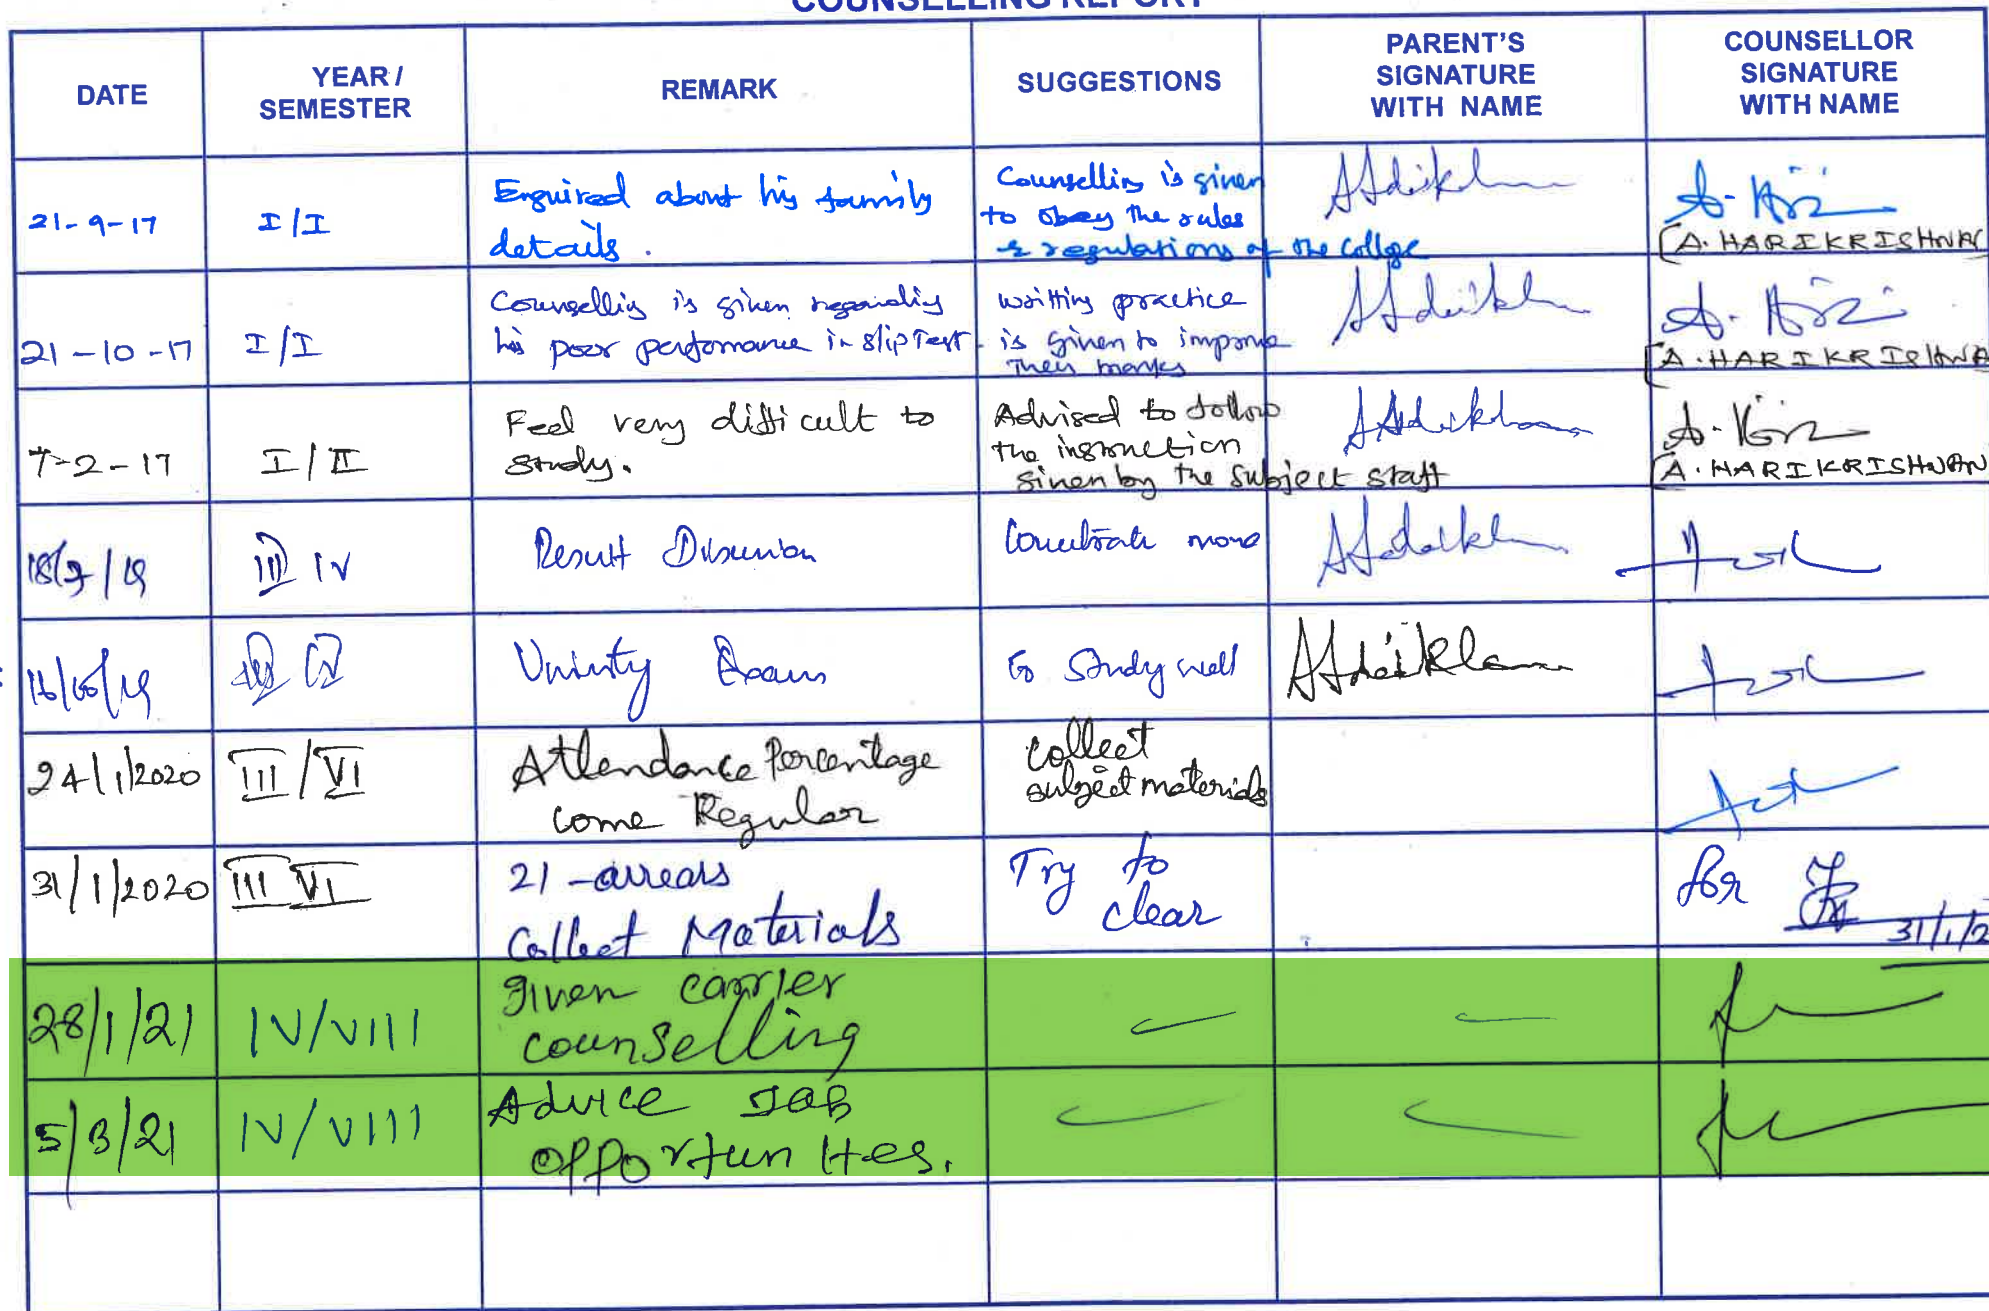 COUNSELLING REPORT
DATE
YEAR /
SEMESTER
REMARK
SUGGESTIONS
PARENT'S
SIGNATURE
WITH NAME
COUNSELLOR
SIGNATURE
WITH NAME
21-9-17
I/I
Enquired about his family
details.
Counselling is given
to obey the rules
& regulations of the College
A. Hari
(A. HARIKRISHNAN
21-10-17
I/I
Counselling is given regarding
his poor performance in slip Test
writting practice
is given to improve
their marks
A. Hari
(A. HARIKRISHNA
7-2-17
I/II
Feel very difficult to
study.
Advised to follow
the instruction
given by the subject staff
A. Hari
(A. HARIKRISHNAN
18/7/19
III IV
Result Discussion
more
Exam
to Study well
24/1/2020
III/VI
Attendance Percentage
come Regular
collect
subject materials
31/1/2020
III VI
21 -arrears
Collect Materials
Try to
clear
for
31/1/2
28/1/21
IV/VIII
given carrier
counselling
5/3/21
IV/VIII
Advice JOB
opportunities.